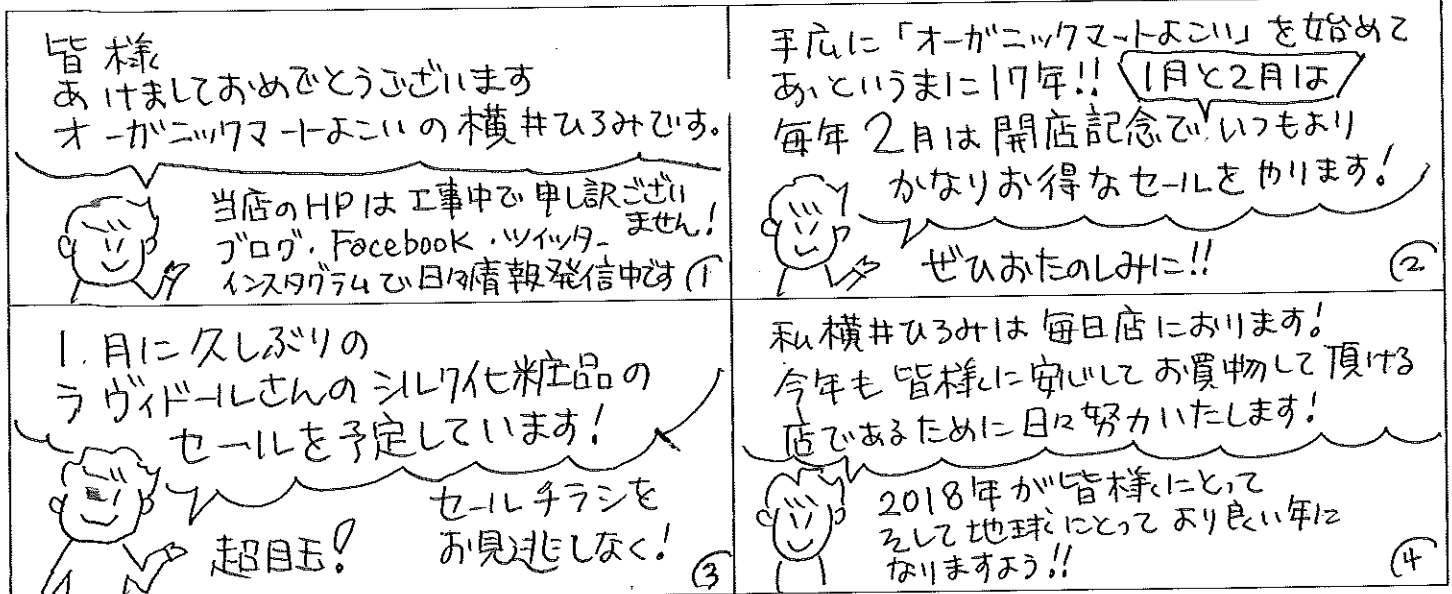 皆様
あけましておめでとうございます
オーガニックマートよこいの横井ひろみです。
当店のHPは工事中で申し訳ござい
ません!
ブログ・Facebook・ツイッター
インスタグラムで日々情報発信中です
①
手広に「オーガニックマートよこい」を始めて
あっというまに17年!!
1月と2月は
毎年2月は開店記念でいつもより
かなりお得なセールをやります!
ぜひおたのしみに!!
②
1月に久しぶりの
ラヴィドールさんのシルク化粧品の
セールを予定しています!
超目玉!
セールチラシを
お見逃しなく!
③
私横井ひろみは毎日店におります!
今年も皆様に安心してお買物して頂ける
店であるために日々努力いたします!
2018年が皆様にとって
そして地球にとってより良い年に
なりますよう!!
④